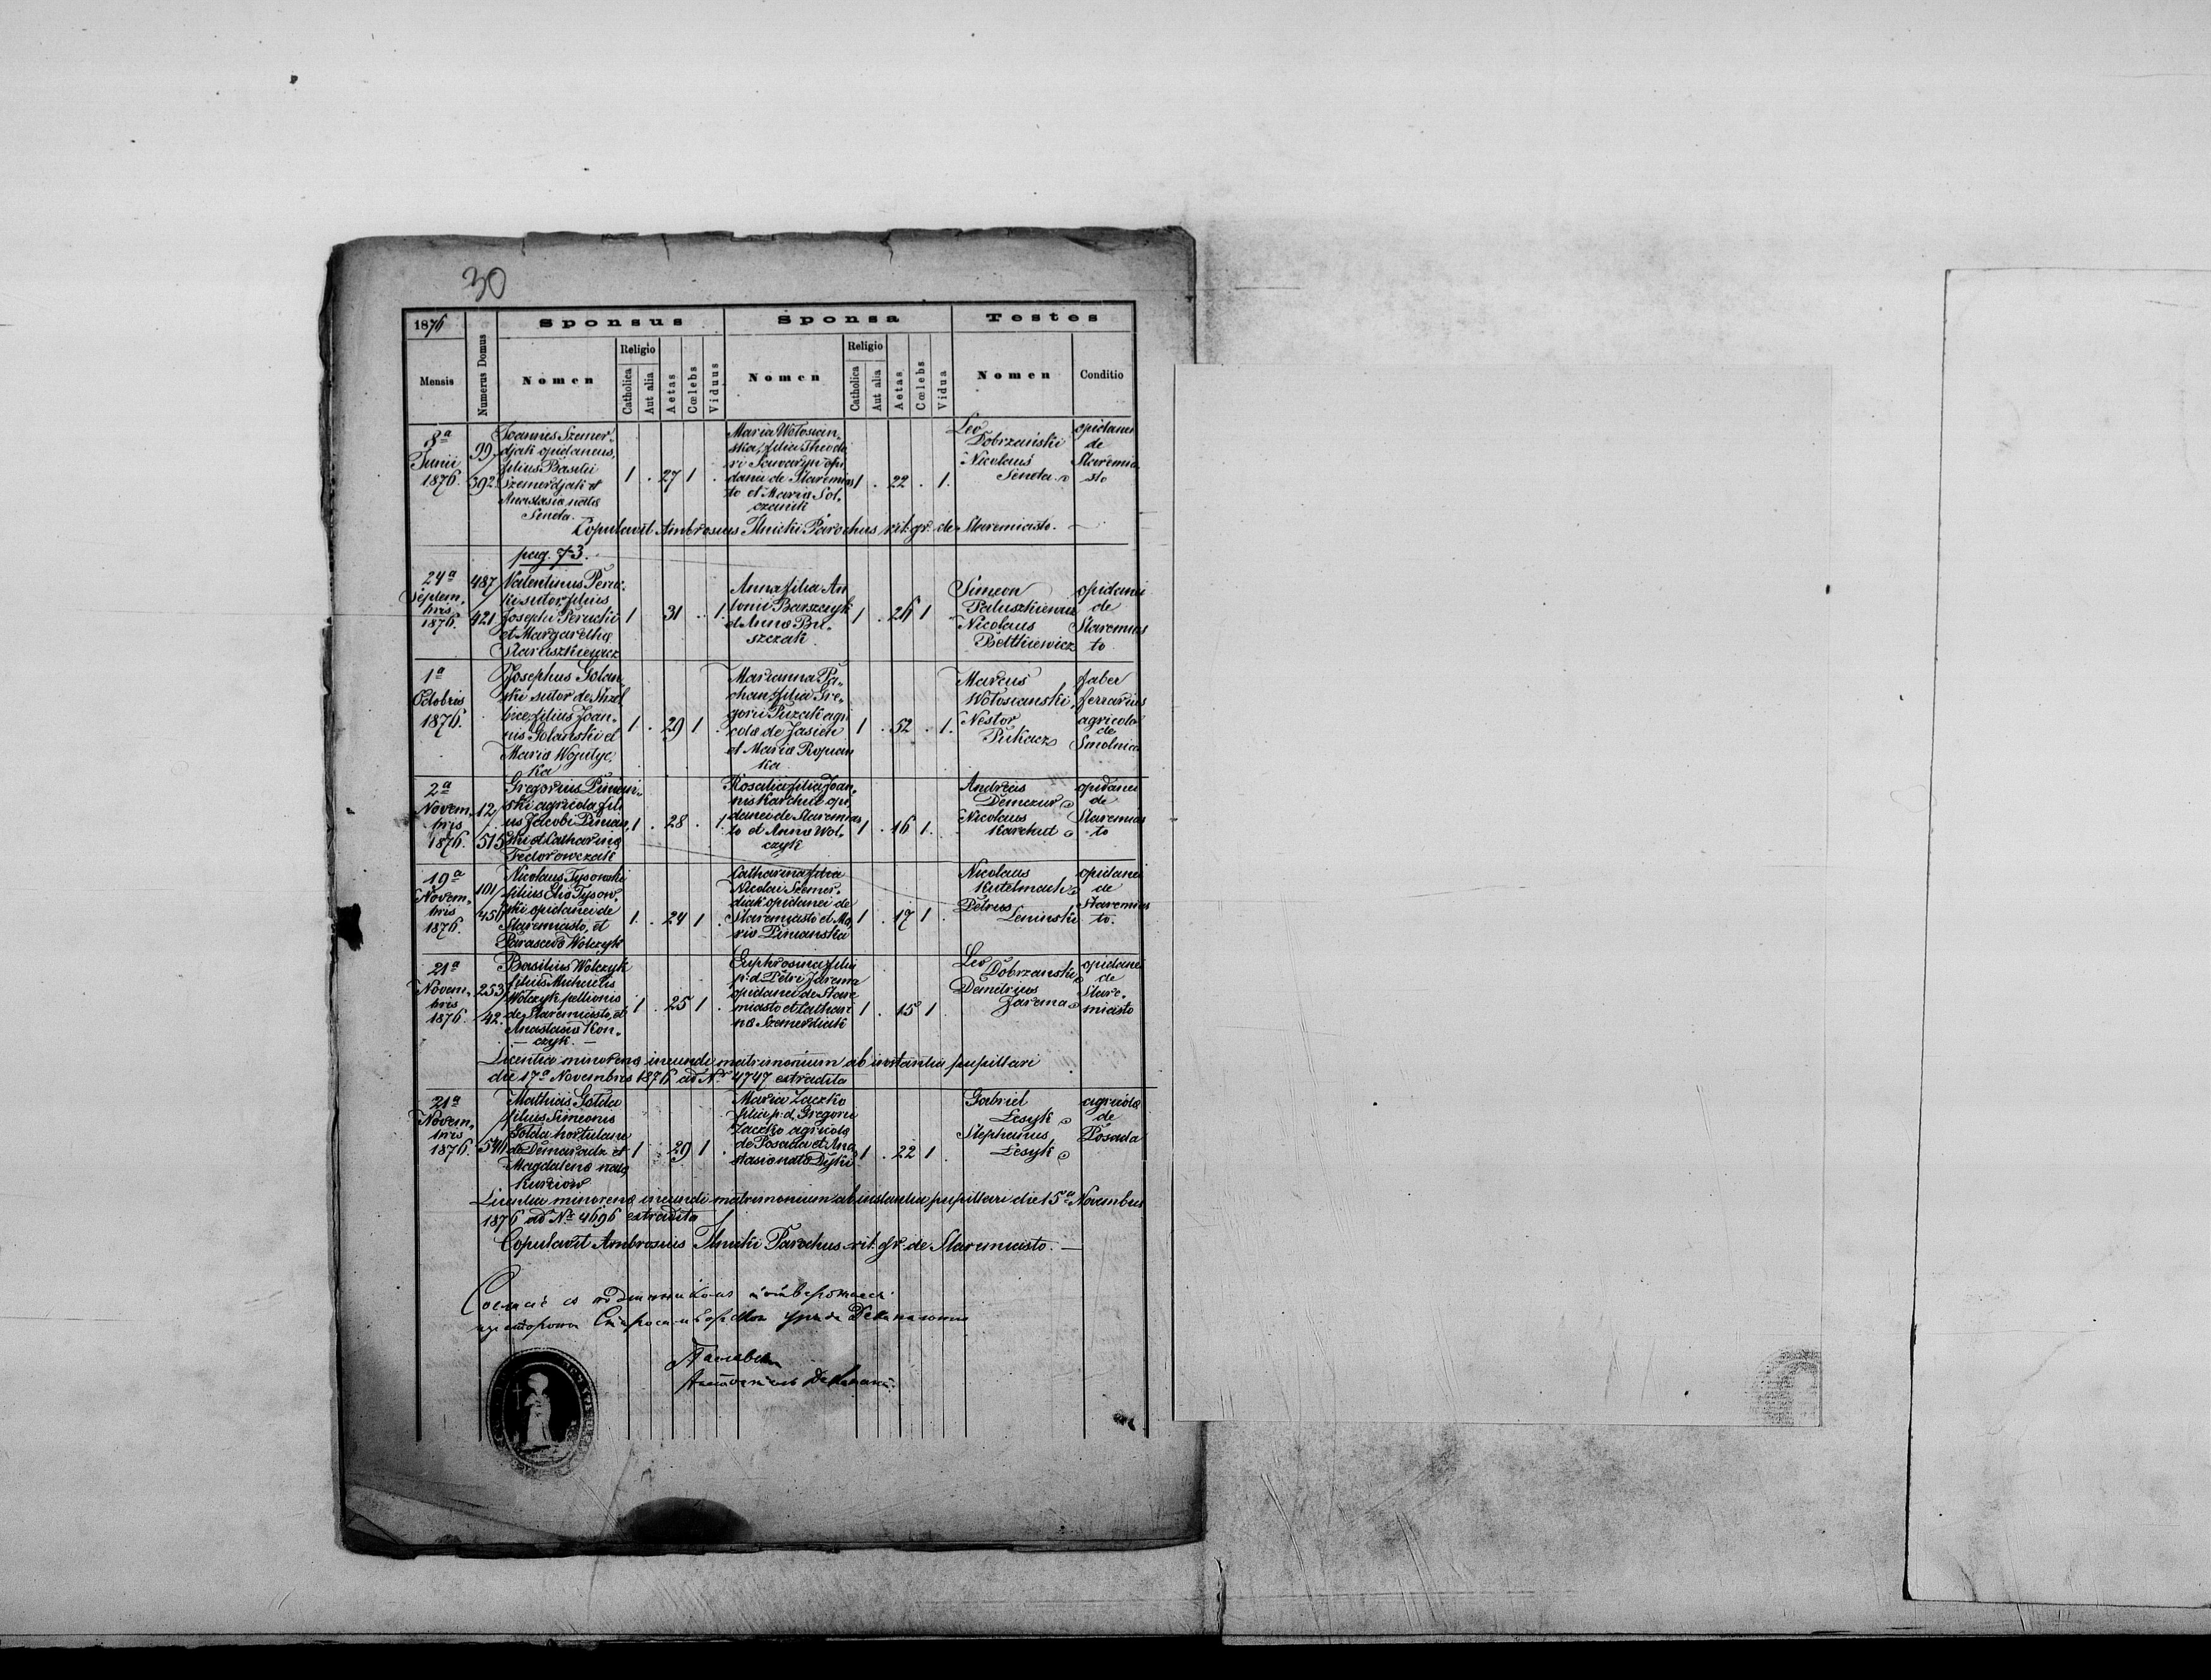 30
1876
Sponsus
Sponsa
Testes
Mensis
Numerus Domus
Nomen
Religio
Catholica
Aut alia
Aetas
Cœlebs
Viduus
Nomen
Religio
Catholica
Aut alia
Aetas
Cœlebs
Vidua
Nomen
Conditio
8ª
Junii
1876.
99/
392
Joannes Szemer„
djak opidanus,
filius Basilii
Szemerdjak et
Anastasia nata
Senda.
1 . 27 1 .
Maria Wołosian„
ska, filia Theodo
ri Sawaryn opi
danei de Staremias
to et Maria Sol„
czanik
1 . 22 . 1.
Leo
Dobrzański
Nicolaus
Senda
opidanei
de
Staremia
sto
Copulavit Ambrosius Ilnicki Parochus rit. gr. de Staremiasto. —
pag. 73.
24ª
Septem„
bris
1876.
487/
421
Valentinus Peruc„
ki sutor, filius
Josephi Perucki
et Margaretha
Staruszkiewicz
1 31 . 1.
Anna filia An
tonii Barszczyk
et Anna Bu„
szczak
1 . 26 1
Simeon
Paluszkiewicz
Nicolaus
Bettkiewicz
opidanei
de
Staremias
to
1ª
Octobris
1876.
Josephus Golan„
ski sutor de Strzel
bice filius Joan„
nis Golanski et
Maria Wojtyc„
ka
1 . 29 1 .
Marianna Pa„
chan, filia Gre„
gorii Puzak agri
cola de Jasien
et Maria Ropian
ka
1 . 52 . 1.
Marcus
Wołosianski,
Nestor
Pukacz
faber
ferrarius
agricola
de
Smolnica
2ª
Novem„
bris
1876.
12/
515
Gregorius Piniań„
ski agricola fili
us Jacobi Pinian„
ski et Catharina
Fedorowczak
1 . 28 . 1.
Rosalia filia Joan„
nis Karchut opi
danei de Staremias
to et Anna Wol„
czyk
1 . 16 1.
Andreas
Demczur
Nicolaus
Karchut
opidanei
de
Staremias
to
19ª
Novem„
bris
1876.
101/
456
Nicolaus Tysowski
filius Elia Tysow„
ski opidanei de
Staremiasto, et
Parasceva Wolczyk
1 . 24 1
Catharina filia
Nicolai Szemer„
diak opidanei de
Staremiasto et Ma„
ria Pinianska
1 . 17 1
Nicolaus
Kutelmach
Petrus
Leninski
opidanei
de
Staremias
to.
21ª
Novem„
bris
1876.
253/
42.
Basilius Wolczyk
filius Michaelis
Wolczyk pellionis
de Staremiasto, et
Anastasia Kon„
— czyk. —
1 . 25 1 .
Euphrosina filia
p. d. Petri Jarema
opidanei de Stare
miasto et Cathari
na Szemerdiak
1 . 15 1
Leo
Dobrzanski
Demetrius
Jarema
opidanei
de
Stare„
miasto
Licentia minorena ineundi matrimonium ab instantia pupillari
die 17ª Novembris 1876 ad Nr 4747 extradita
21ª
Novem„
bris
1876.
546
Mathias Gołda
filius Simeonis
Gołda hortulani
de Domaradz et
Magdalena nata
Kurciow
1 . 29 1 .
Maria Zaczko
filia p. d. Gregorii
Zaczko agricola
de Posada et Ana
stasia nata Dyki
1 . 22 1
Gabriel
Łesyk
Stephanus
Łesyk
agricola
de
Posada
Licentia minorena ineundi matrimonium ab instantia pupillari die 15ª Novembris
1876 ad Nr 4696 extradita
Copulavit Ambrosius Ilnicki Parochus rit. gr. de Staremiasto. —